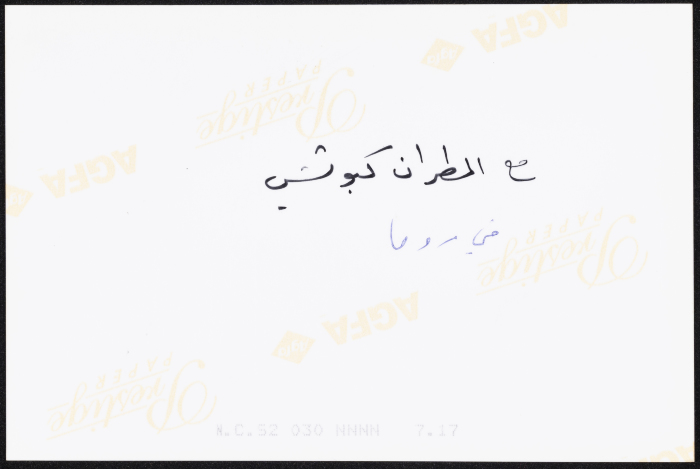 AGFA
Prestige
PAPER
AGFA
مع المطران كبوتشي
في روما
Prestige
PAPER
AGFA
Prestige
PAPER
N.C.52 030 NNNN 7.17
AGFA